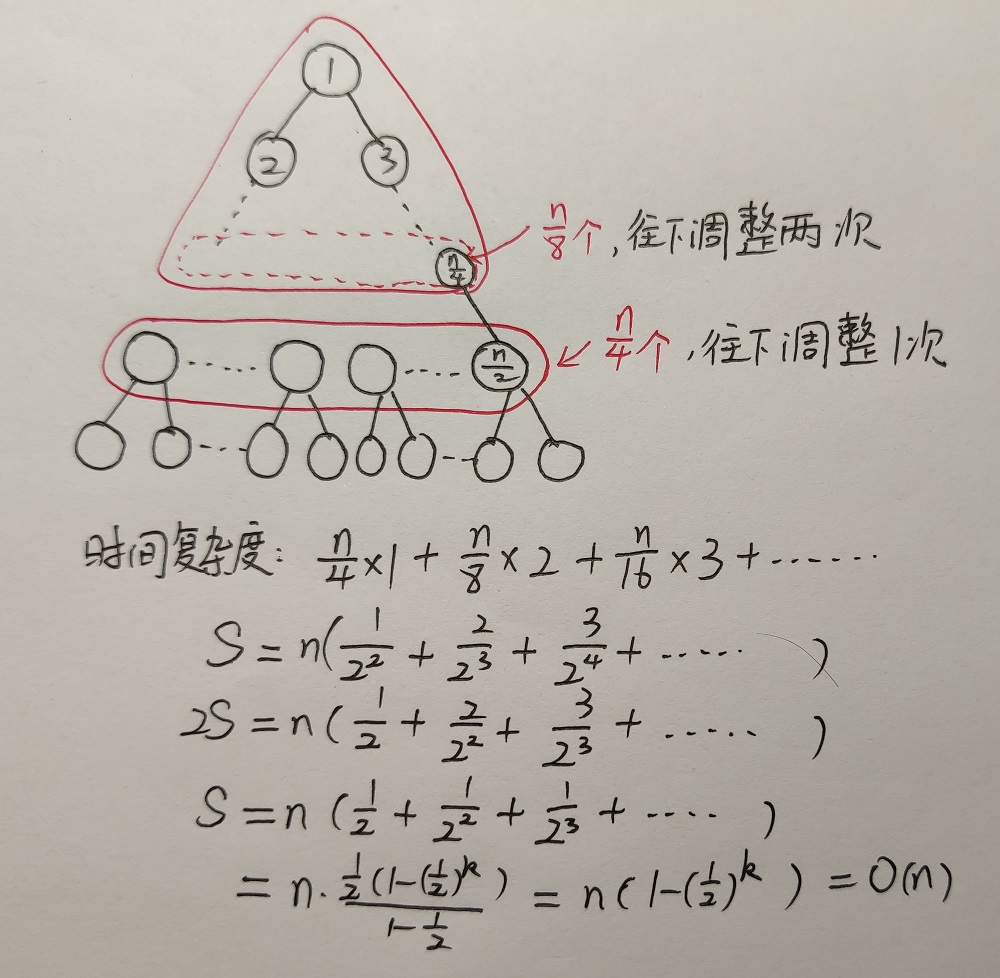 1
2 3
n/4
n/8个,往下调整两次
n/2
n/4个,往下调整1次
时间复杂度: n/4×1 + n/8×2 + n/16×3 + ......
S = n(1/2² + 2/2³ + 3/2⁴ + ..... )
2S = n(1/2 + 2/2² + 3/2³ + ..... )
S = n(1/2 + 1/2² + 1/2³ + .... )
= n·(1/2(1-(1/2)^k))/(1-1/2) = n(1-(1/2)^k) = O(n)